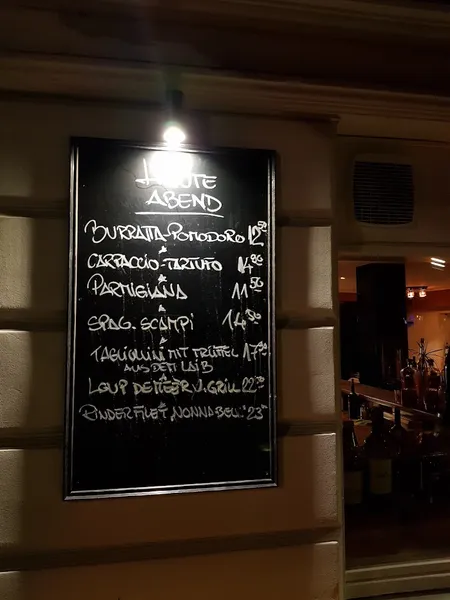 HEUTE
ABEND
BURRATA-POMODORO 12
CARPACCIO-TARTUFO 14
PARMIGIANA 11 50
SPAG. SCAMPI 14
TAGLIOLINI MIT TRÜFFEL 17
AUS DEM LAIB
LOUP DE MEER V. GRILL 22
RINDERFILET "NONNA BELL" 23